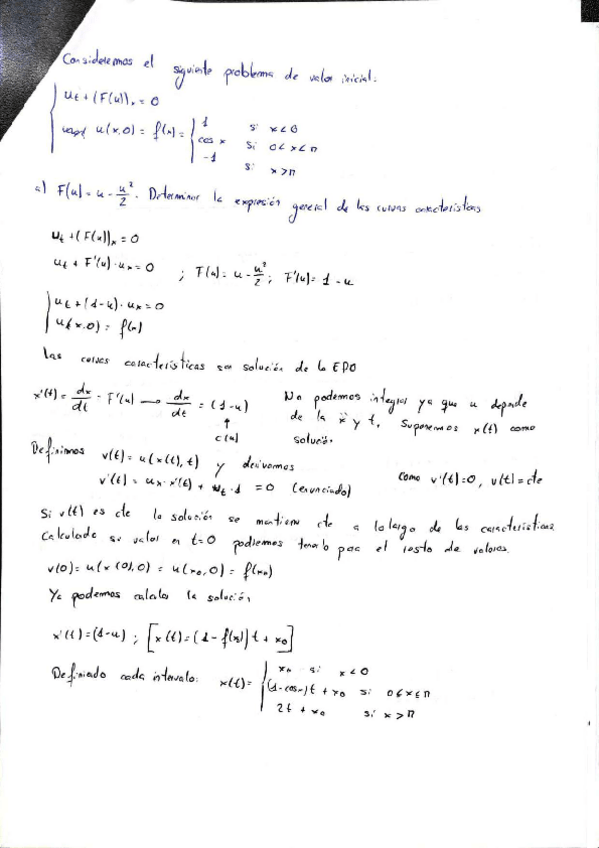 Consideremos el siguiente problema de valor inicial:
ut + (F(u))x = 0
u(x,0) = f(x) = { 1 si x<0
cos x si 0<x<π
-1 si x>π
a) F(u) = u - u²/2. Determinar la expresión general de las curvas características
ut + (F(u))x = 0
ut + F'(u)·ux = 0 ; F(u) = u - u²/2 ; F'(u) = 1 - u
ut + (1-u)·ux = 0
u(x,0) = f(x)
Las curvas características son solución de la EDO
x'(t) = dx/dt = F'(u) → dx/dt = (1-u) No podemos integrar ya que u depende
de la x y t. Suponemos x(t) como
↑
c(u) solución.
Definimos v(t) = u(x(t),t) y derivamos
v'(t) = ux·x'(t) + ut·1 = 0 (enunciado) como v'(t)=0, v(t)=cte
Si v(t) es cte la solución se mantiene cte a lo largo de las características.
Calculado su valor en t=0 podremos tenerlo para el resto de valores.
v(0) = u(x(0),0) = u(x0,0) = f(x0)
Ya podemos calcular la solución
x'(t) = (1-u) ; [x(t) = (1-f(x0))t + x0]
Definiendo cada intervalo: x(t) = { x0 si x<0
(1-cosx)t + x0 si 0≤x≤π
2t + x0 si x>π